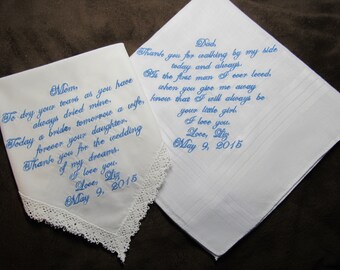 Mom,
To dry your tears as you have
always dried mine.
Today a bride, tomorrow a wife,
forever your daughter.
Thank you for the wedding
of my dreams.
I love you.
Love, Liz
May 9, 2015
Dad,
Thank you for walking by my side
today and always.
As the first man I ever loved,
when you give me away
know that I will always be
your little girl.
I love you.
Love, Liz
May 9, 2015